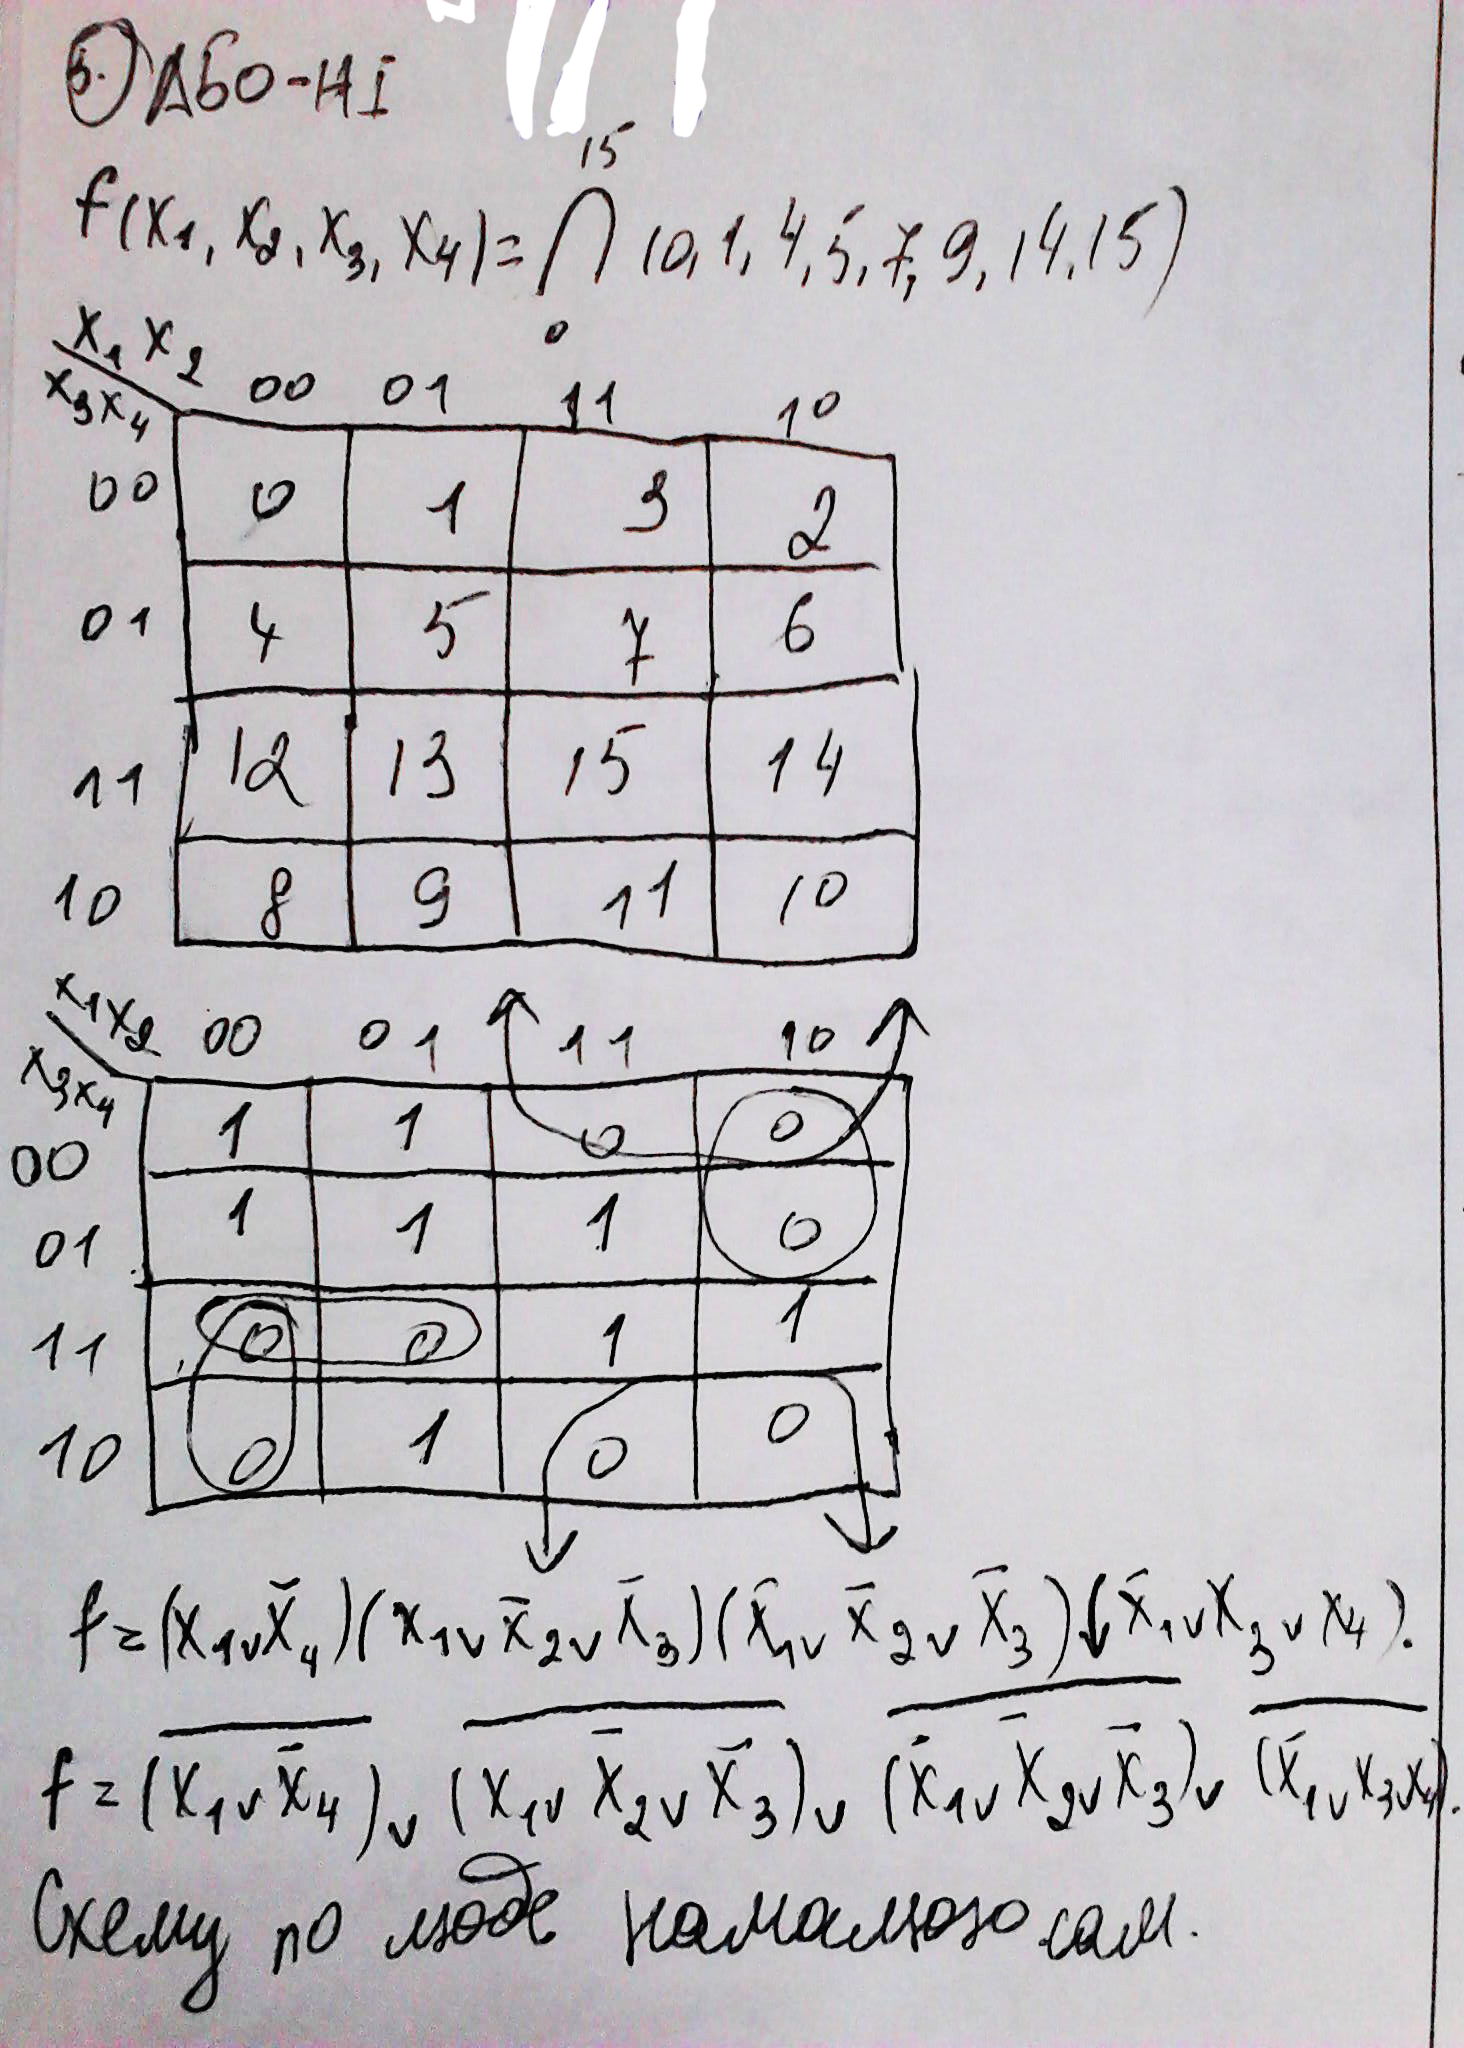 5. АБО-НІ
15
f(x₁, x₂, x₃, x₄) = ⋂ (0, 1, 4, 5, 7, 9, 14, 15)
0
x₁x₂
x₃x₄ 00 01 11 10
00 0 1 3 2
01 4 5 7 6
11 12 13 15 14
10 8 9 11 10
x₁x₂ 00 01 11 10
x₃x₄
00 1 1 0 0
01 1 1 1 0
11 0 0 1 1
10 0 1 0 0
f = (x₁ ∨ x̄₄)(x₁ ∨ x̄₂ ∨ x̄₃)(x̄₁ ∨ x̄₂ ∨ x̄₃)(x̄₁ ∨ x₃ ∨ x₄).
f = (x₁ ∨ x̄₄) ∨ (x₁ ∨ x̄₂ ∨ x̄₃) ∨ (x̄₁ ∨ x̄₂ ∨ x̄₃) ∨ (x̄₁ ∨ x₃ ∨ x₄).
Схему по намалюю сам.